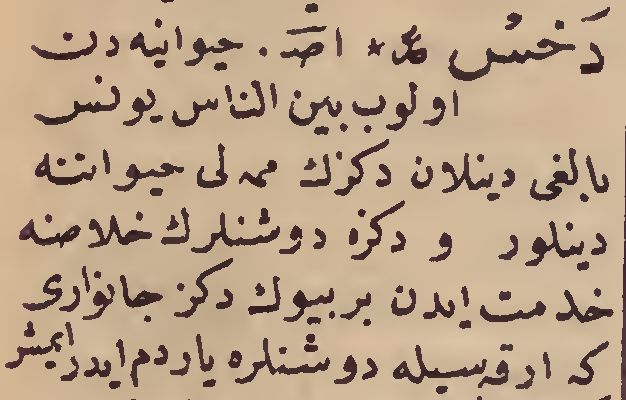 دَخسُ * اصـ . حیوانیه دن
اولوب بین الناس یونس
بالغی دینلان دکزك ممه لی حیواننه
دینلور و دکزه دوشنلرك خلاصنه
خدمت ایدن بر بیوك دکز جانواری
که ارقه سیله دوشنلره یاردم ایدر ایمش